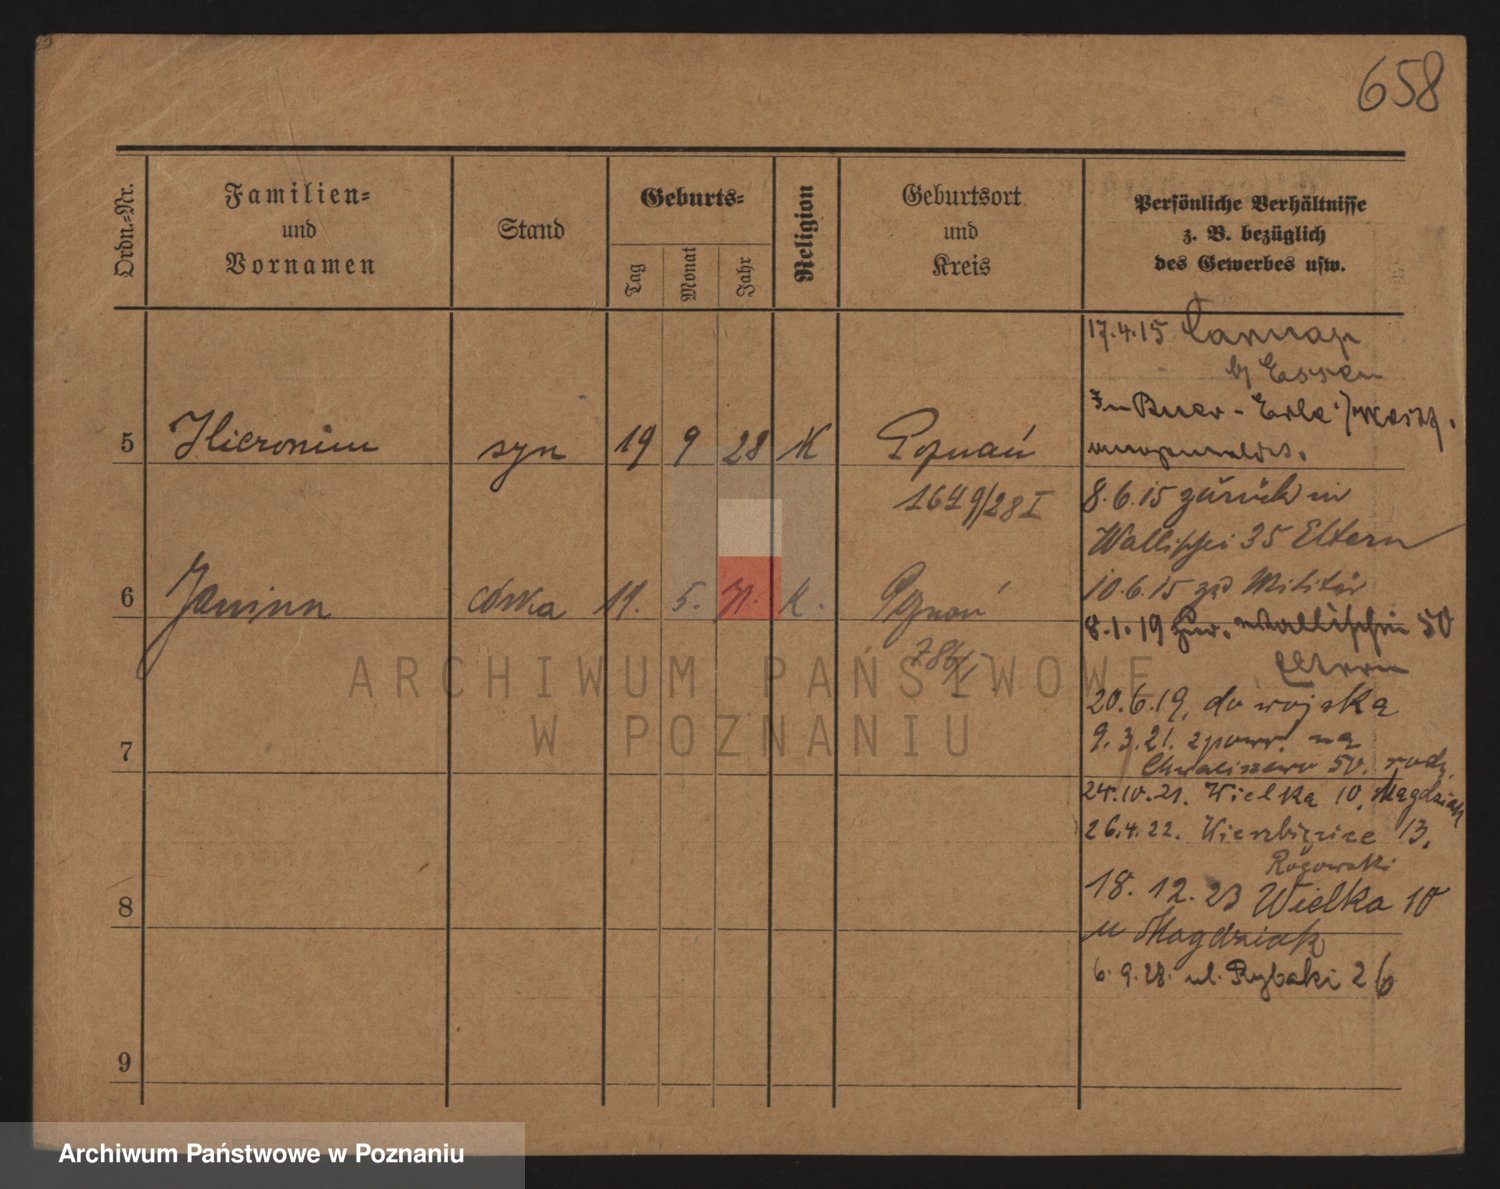 658
Ordn.-Nr.
Familien-
und
Vornamen
Stand
Geburts-
Tag
Monat
Jahr
Religion
Geburtsort
und
Kreis
Persönliche Verhältnisse
z. B. bezüglich
des Gewerbes usw.
5 Hieronim syn 19 9 28 K Poznań
1649/28 I
6 Janina córka 11. 5. 31. K. Poznań
786/I
7
8
9
17.4.15
b/ Essen
In Buer-Erle
8.6.15 zurück in
Wallischei 35 Eltern
10.6.15 zum Militär
8.1.19 zur. Wallischei 50
Eltern
20.6.19. do wojska
9.3.21. zpowr. na
Chwaliszewo 50. rodz.
24.10.21. Wielka 10, Magdziak
26.4.22. Wierzbięcice 13,
Rogowski
18.12.23 Wielka 10
u Magdziak
6.9.28. ul. Rybaki 26
ARCHIWUM PAŃSTWOWE
W POZNANIU
Archiwum Państwowe w Poznaniu